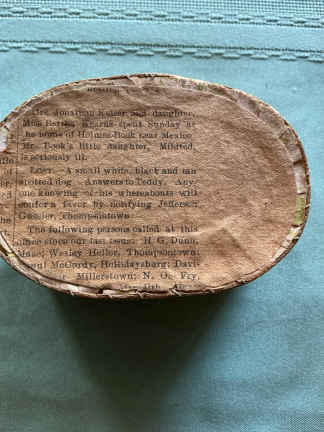 Mrs. Jonathan Kauser and daughter,
Miss Bertha Kearns spent Sunday at
the home of Holmes Book near Mexico
Mr. Book's little daughter, Mildred
is seriously ill.
LOST—A small white, black and tan
spotted dog. Answers to Teddy. Any-
one knowing of his whereabouts will
confer a favor by notifying Jefferson
Thompsontown
The following persons called at this
office since our last issue: H. G. Dunn,
Wesley Heller, Thompsontown;
McCordy, Hollidaysburg; Davi-
Millerstown; N. O. Fry,